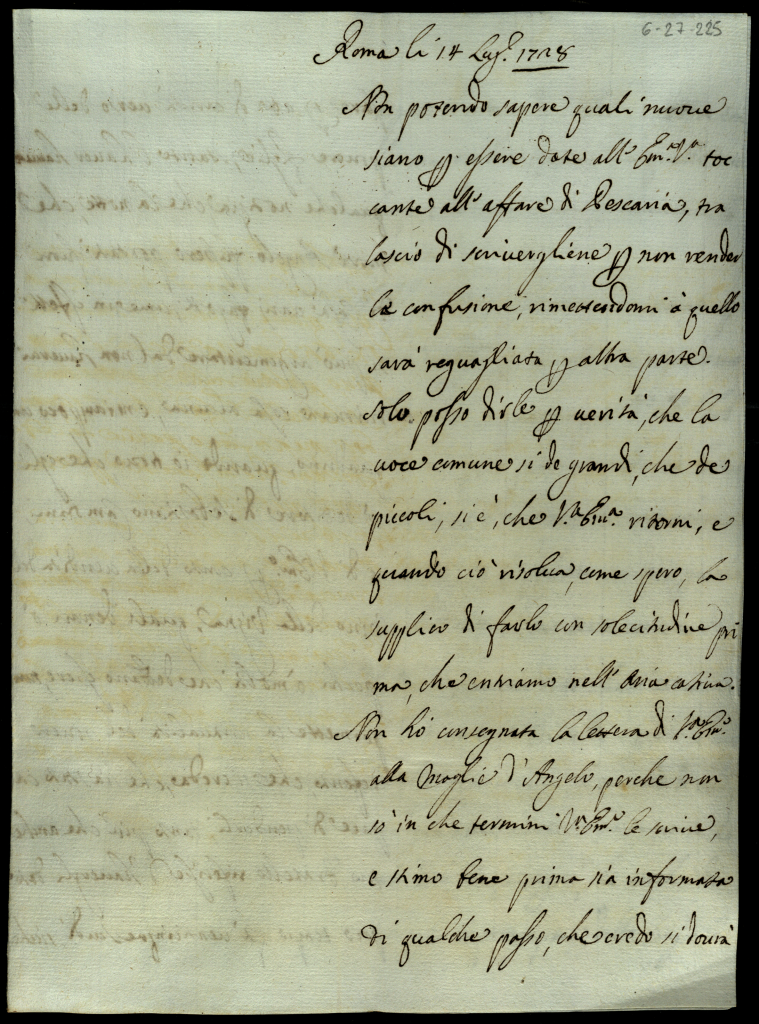 6-27-225
Roma li 14 Lug.o 1728
Non potendo sapere quali nuove
siano p essere date all' Em.a V.a toc
cante all' affare di Pescaria, tra
lascio di scrivergliene p non render
la confusione, rimettendomi à quello
sarà reguagliata p altra parte.
Solo posso dirle p verità, che la
voce comune si de grandi, che de
piccoli, si è, che V.a Em.a ritorni, e
quando ciò risolva, come spero, la
supplico di farlo con solecitudine pri
ma, che entriamo nell' aria cativa.
Non hò consegnata la lettera di V.a Em.a
alla Moglie d' Angelo, perche non
sò in che termini V.a Em.a le scrive,
e stimo bene prima sia informata
di qualche passo, che credo si dovrà